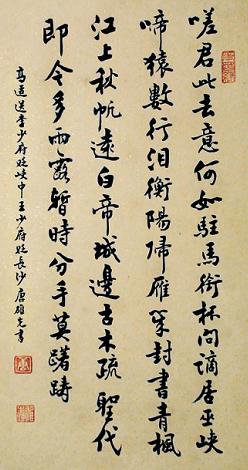 嗟君此去意何如駐馬銜杯問謫居巫峽
啼猿數行淚衡陽歸雁幾封書青楓
江上秋帆遠白帝城邊古木疏聖代
即今多雨露暫時分手莫躊躇
高適送李少府貶峽中王少府貶長沙 書